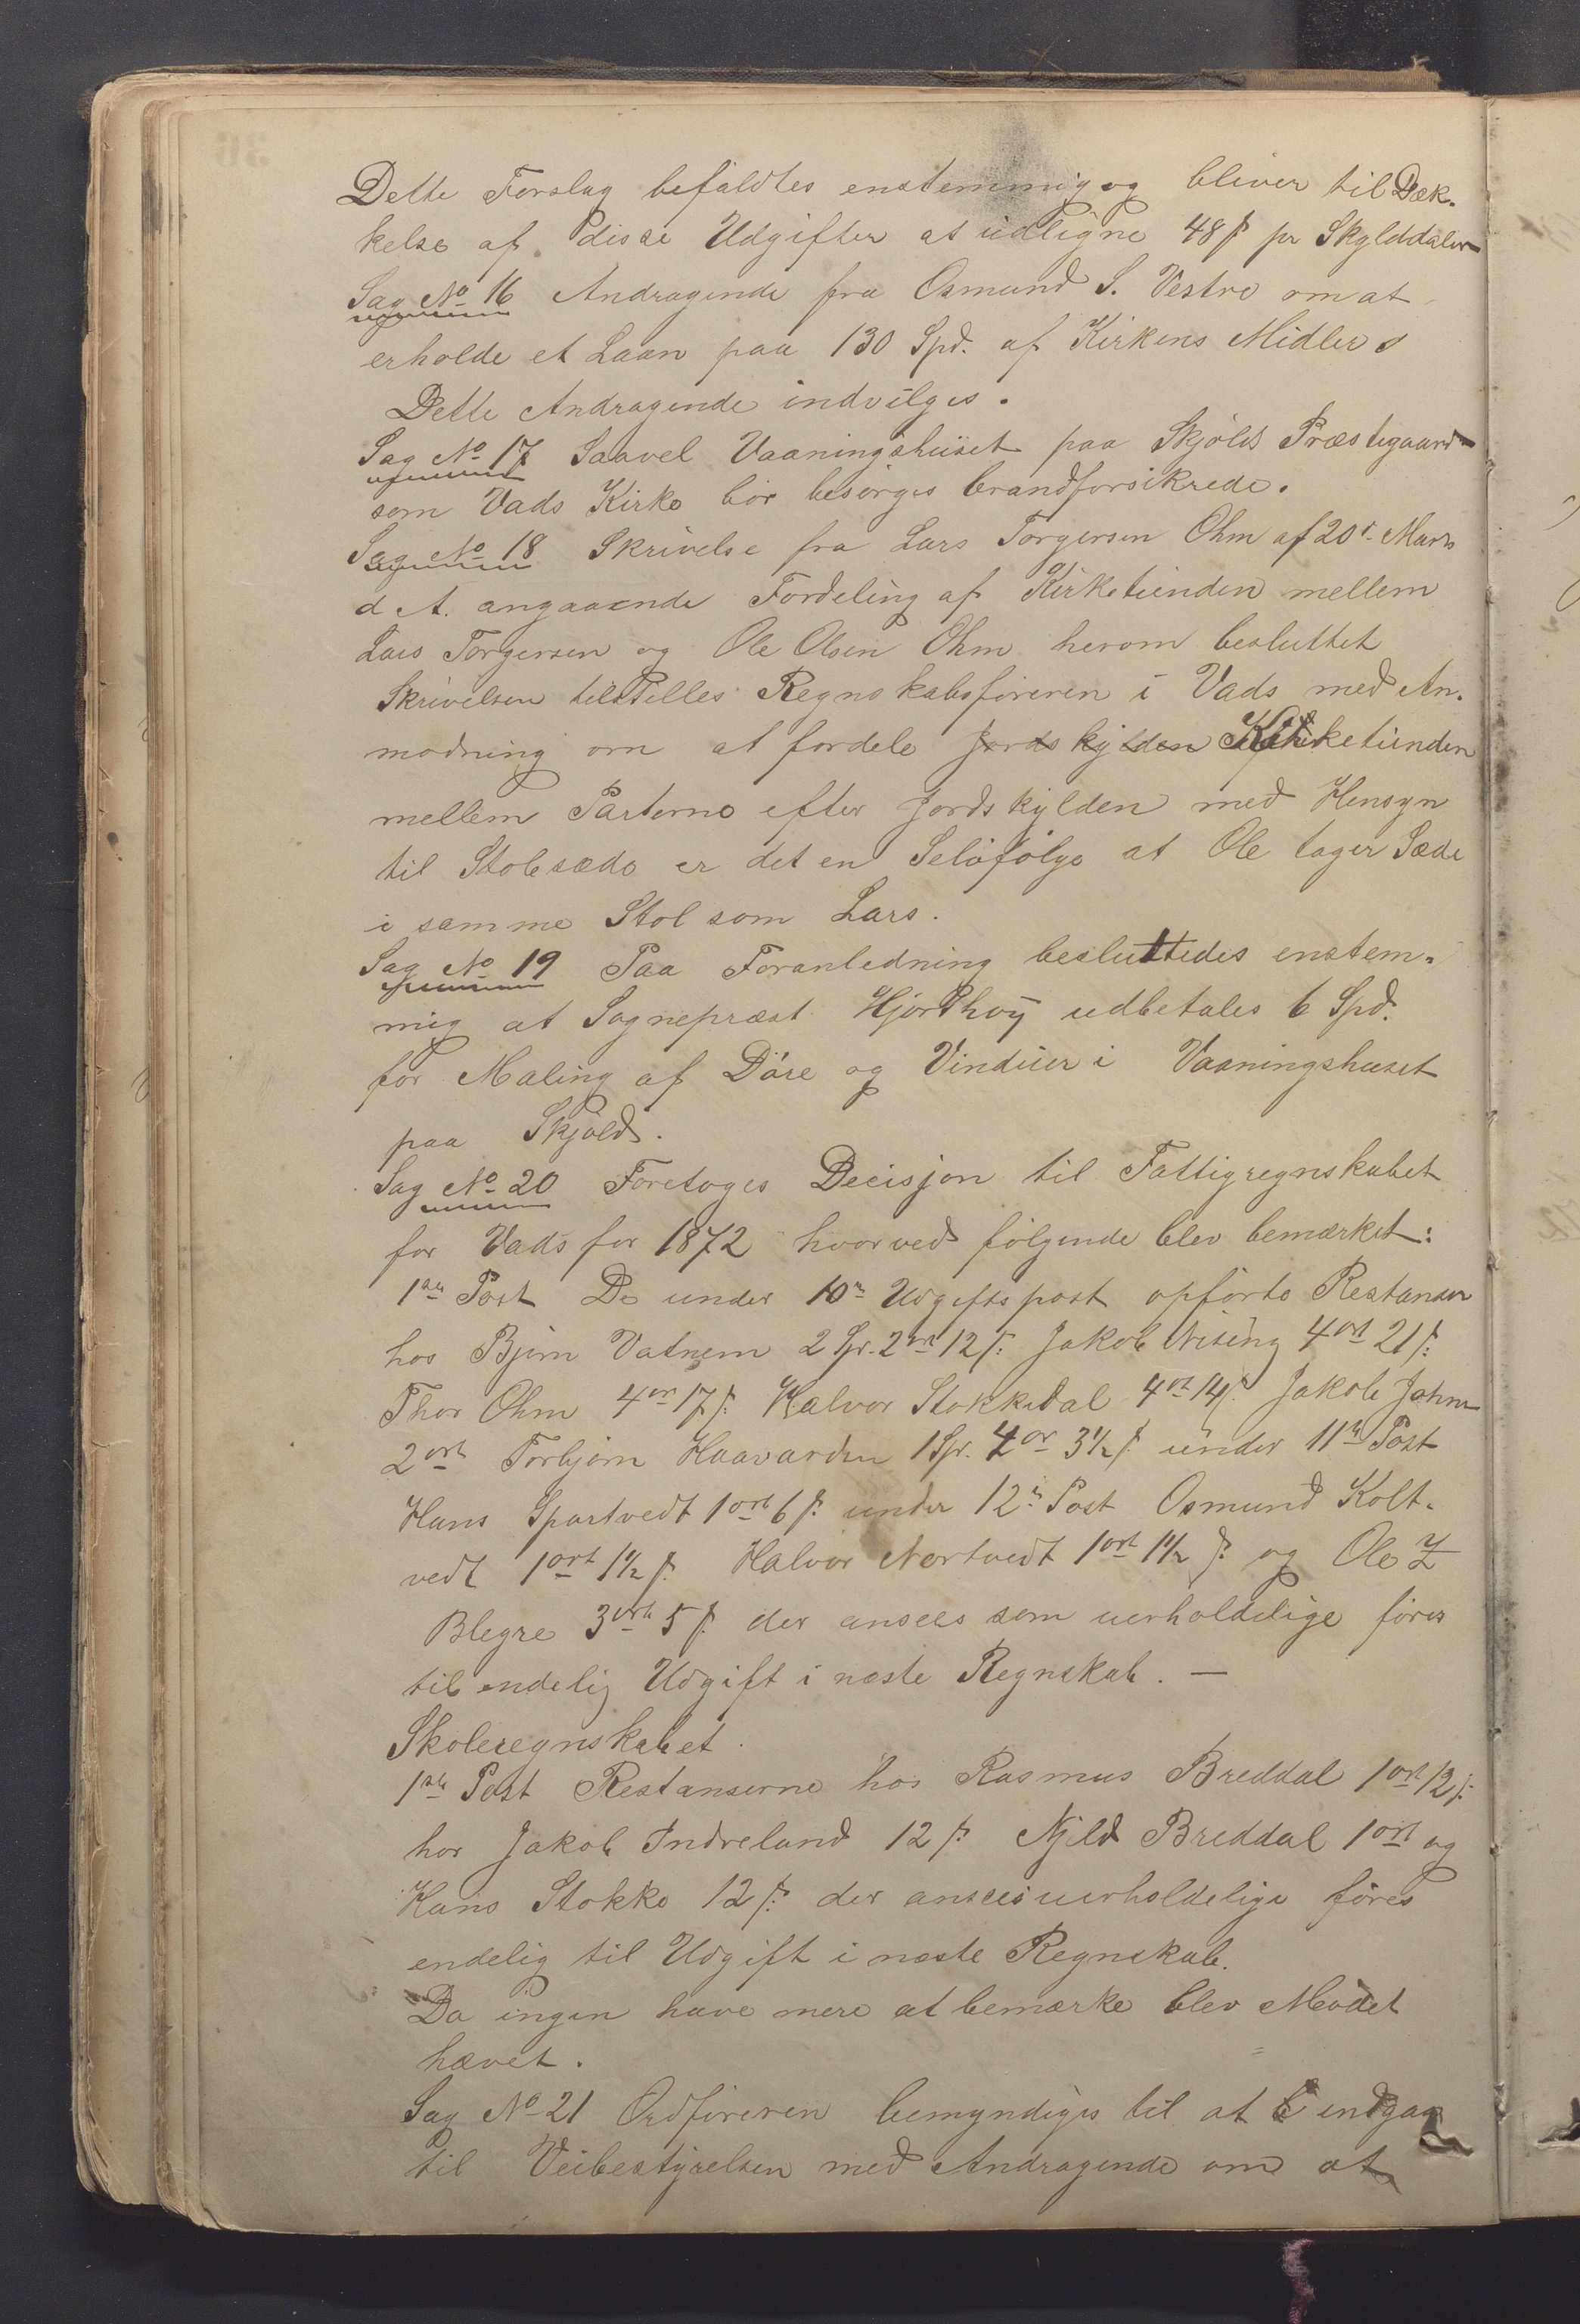 Dette Forslag befaldtes enstemmig og bliver til Dæk-
kelse af disse Udgifter at udligne 48 ß pr Skylddaler
Sag No 16 Andragende fra Osmund S. Vestre om at
erholde et Laan paa 130 Spd. af Kirkens Midler
Dette Andragende indvilges.
Sag No 17 Saavel Vaaningshuset paa Skjolds Præstegaard
som Vads Kirke bør besørges brandforsikrede.
Sag No 18 Skrivelse fra Lars Torgersen Ohm af 20d. Marts
d. A. angaaende Fordeling af Kirketienden mellem
Lars Torgersen og Ole Olsen Ohm herom besluttet
Skrivelsen tilstilles Regnskabsføreren i Vads med An-
modning om at fordele Jordskylden Kirketienden
mellem Parterne efter Jordskylden med Hensyn
til Stolesæde er det en Selvfølge at Ole tager Sæde
i samme Stol som Lars.
Sag No 19 Paa Foranledning besluttedes enstem-
mig at Sognepræst Hjorthøy udbetales 6 Spd.
for Maling af Døre og Vinduer i Vaaningshuset
paa Skjold.
Sag No 20 Foretoges Decisjon til Fattigregnskabet
for Vads for 1872 hvorved følgende blev bemærket:
1ste Post De under 10de Udgiftspost opførte Restanser
hos Bjørn Vatnem 2 Sp. 2 ort 12 ß. Jakob 4 ort 21 ß.
Thor Ohm 4 ort 17 ß. Halvor Stokkedal 4 ort 14 ß. Jakob Johns
2 ort Torbjørn Haavardsen 1 Sp. 4 or 3½ ß. under 11te Post
Hans Spartvedt 1 ort 6 ß. under 12te Post Osmund Kolt-
vedt 1 ort 1½ ß. Halvor Nertvedt 1 ort 1½ ß. og Ole
Blegre 3 ort 5 ß. der ansees som uerholdelige føres
til endelig Udgift i næste Regnskab. —
Skoleregnskabet.
1ste Post Restanserne hos Rasmus Breddal 1 ort 12 ß.
hos Jakob Indreland 12 ß. Njeld Breddal 1 ort og
Hans Stokke 12 ß. der ansees uerholdelige føres
endelig til Udgift i næste Regnskab.
Da ingen have mere at bemærke blev Mødet
hævet.
Sag No 21 Ordføreren bemyndiges til at indgaa
til Veibestyrelsen med Andragende om at